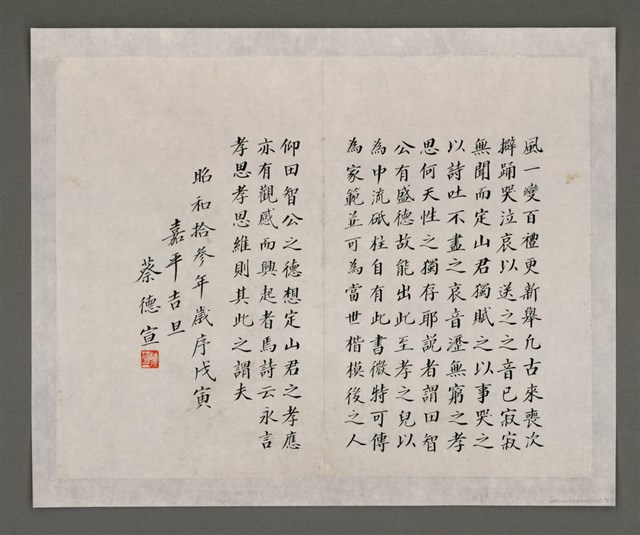 風一變百禮更新舉凡古來喪次
擗踊哭泣哀以送之之音已寂寂
無聞而定山君獨賦之以事哭之
以詩吐不盡之哀音瀝無窮之孝
思何天性之獨存耶説者謂田智
公有盛德故能出此至孝之兒以
為中流砥柱自有此書微特可傳
為家範並可為當世楷模後之人
仰田智公之德想定山君之孝應
亦有觀感而興起者焉詩云永言
孝思孝思維則其此之謂夫
昭和拾參年歲序戊寅
嘉平吉旦
蔡德宣